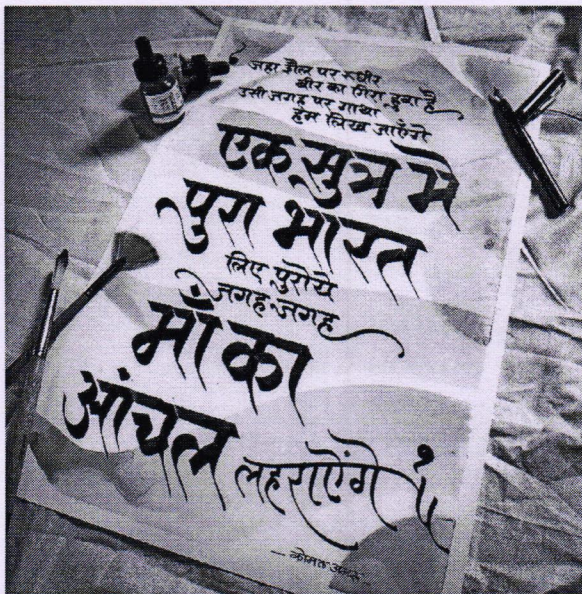 जहा शैल पर रूधीर
वीर का गिरा हूवा है
उसी जगह पर गाथा
हम लिख जाएँगे
एक सुत्र मे
पुरा भारत
लिए पुरोये
जगह-जगह
माँ का
आंचल लहराऐंगे